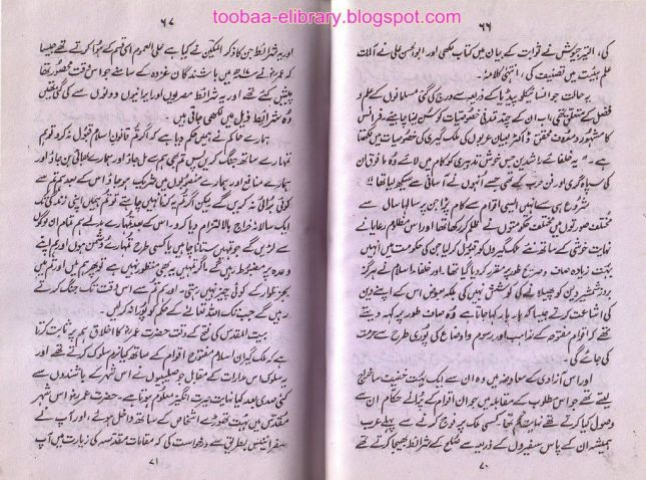 toobaa-elibrary.blogspot.com
۶۶
کی، التیر جو کوشش نے ثوابت کے بیان میں کتاب لکھی اور ابو الحسن علی نے آلات
علم ہیئت میں تصنیف کی، انتہی کلامہ۔
یہ حالت جو انسائیکلو پیڈیا کے ذریعہ سے درج کی گئی مسلمانوں کے علم و
فضل کے متعلق تھی، اب ان کے چند تمدنی خصوصیات کو سن لینا چاہئے، فرانس
کا مشہور و معروف محقق ڈاکٹر لیبان عربوں کی ملک گیری کی خصوصیات میں لکھتا
ہے۔ "یہ خلفائے راشدین جس خوش تدبیری کو کام میں لائے وہ مافوق ان
کی سپاہ گری اور فن حرب کے تھی جسے انہوں نے آسانی سے سیکھ لیا تھا۔
شروع ہی سے انہیں ایسی اقوام سے کام پڑا جن پر سالہا سال سے
مختلف صورتوں میں مختلف حکومتوں نے ظلم کر رکھا تھا اور اس مظلوم رعایا نے
نہایت خوشی کے ساتھ نئے ملک گیروں کو قبول کر لیا جن کی حکومت میں انہیں
بہت زیادہ صاف و صریح طور پر مقرر کر دیا گیا تھا۔ اور خلفاء اسلام نے ہرگز
بزور شمشیر دین کو پھیلانے کی کوشش نہیں کی بلکہ بعوض اس کے اپنے دین
کی اشاعت کرتے جیسا کہ بار بار کہا جاتا ہے وہ صاف طور پر کہہ دیتے
تھے کہ اقوام مفتوحہ کے مذاہب اور رسوم و اوضاع کی پوری طرح سے حرمت
کی جائے گی۔
اور اس آزادی کے معاوضہ میں وہ ان سے ایک بہت خفیف سا خراج
لیتے تھے جو اس مطلوب کے مقابلہ میں جو ان اقوام کے پرانے حکام ان سے
وصول کیا کرتے تھے نہایت کم تھا۔ کسی ملک پر فوج کرنے سے پہلے عرب
ہمیشہ ان کے پاس سفیروں کے ذریعہ سے صلح کے شرائط بھیجا کرتے تھے
۷۰
۶۷
اور یہ شرائط جن کا ذکر المکین نے کیا ہے علی العموم اسی قسم کے ہوا کرتے تھے جیسا
کہ عمرو نے میں باشندگان غزہ کے سامنے جو اس وقت محصور تھا
پیش کئے تھے اور یہ شرائط مصریوں اور ایرانیوں دونوں سے کی گئی تھیں
وہ شرائط ذیل میں لکھی جاتی ہیں
ہمارے حاکم نے ہمیں حکم دیا ہے کہ اگر تم قانون اسلام قبول نہ کرو تو ہم
تمہارے ساتھ جنگ کریں پس تم بھی ہم سے مل جاؤ اور ہمارے بھائی بن جاؤ اور
ہمارے منافع اور ہمارے منصوبوں میں شریک ہو جاؤ اس کے بعد ہم تم سے
کوئی برائی نہ کریں گے لیکن اگر تم یہ کرنا نہیں چاہتے تو تم ہمیں اپنی زندگی تک
ایک سالانہ خراج بالالتزام دیا کرو۔ اس کے بعد تمہارے بدلے ہم تمام ان لوگوں
سے لڑیں گے جو تمہیں ستانا چاہیں یا کسی طرح تمہارے دشمن ہوں اور ہم اپنے
وعدہ پر مضبوط رہیں گے۔ اگر تمہیں یہ بھی منظور نہیں ہے تو پھر ہم میں اور تم میں
بجز تلوار کے کوئی چیز نہیں رہتی۔ اور ہم تم سے اس وقت تک جنگ کرتے
رہیں گے جب تک اللہ تعالیٰ کے حکم کو پورا نہ کر لیں۔
بیت المقدس کی فتح کے وقت حضرت عمرؓ کا اخلاق ہم پر ثابت کرتا
ہے کہ ملک گیران اسلام مفتوح اقوام کے ساتھ کیا نرم سلوک کرتے تھے اور
یہ سلوک اس مدارات کے مقابل جو صلیبیوں نے اس شہر کے باشندوں سے
کئی صدی بعد کیا نہایت حیرت انگیز معلوم ہوتا ہے۔ حضرت عمرؓ اس شہر
مقدس میں بہت تھوڑے اشخاص کے ساتھ داخل ہوئے اور آپ نے
سفرانیئس بطریق سے درخواست کی کہ مقامات مقدسہ کی زیارت میں آپ
۷۱